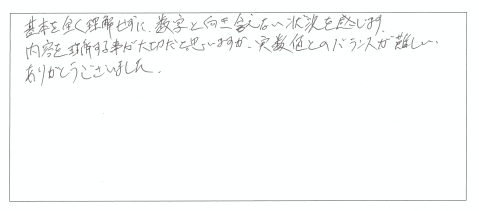 基本を全く理解せずに、数字と向き合えない状況を感じます。
内容を理解する事が大切だと思いますが、実数値とのバランスが難しい。
ありがとうございました。